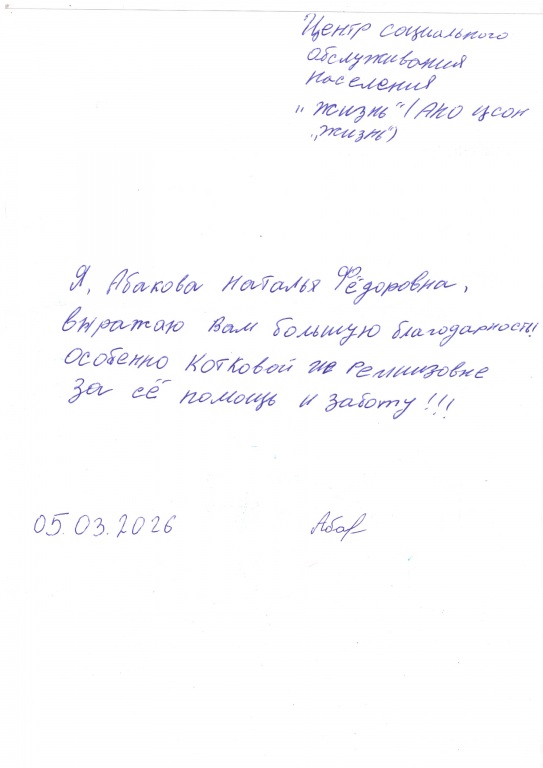 Центр социального
обслуживания
населения
"жизнь" (Ано цсон
"жизнь")
Я, Абакова Наталья Фёдоровна,
выражаю Вам большую благодарность!
Особенно Котковой Ремиизовне
за её помощь и заботу!!!
05.03.2026